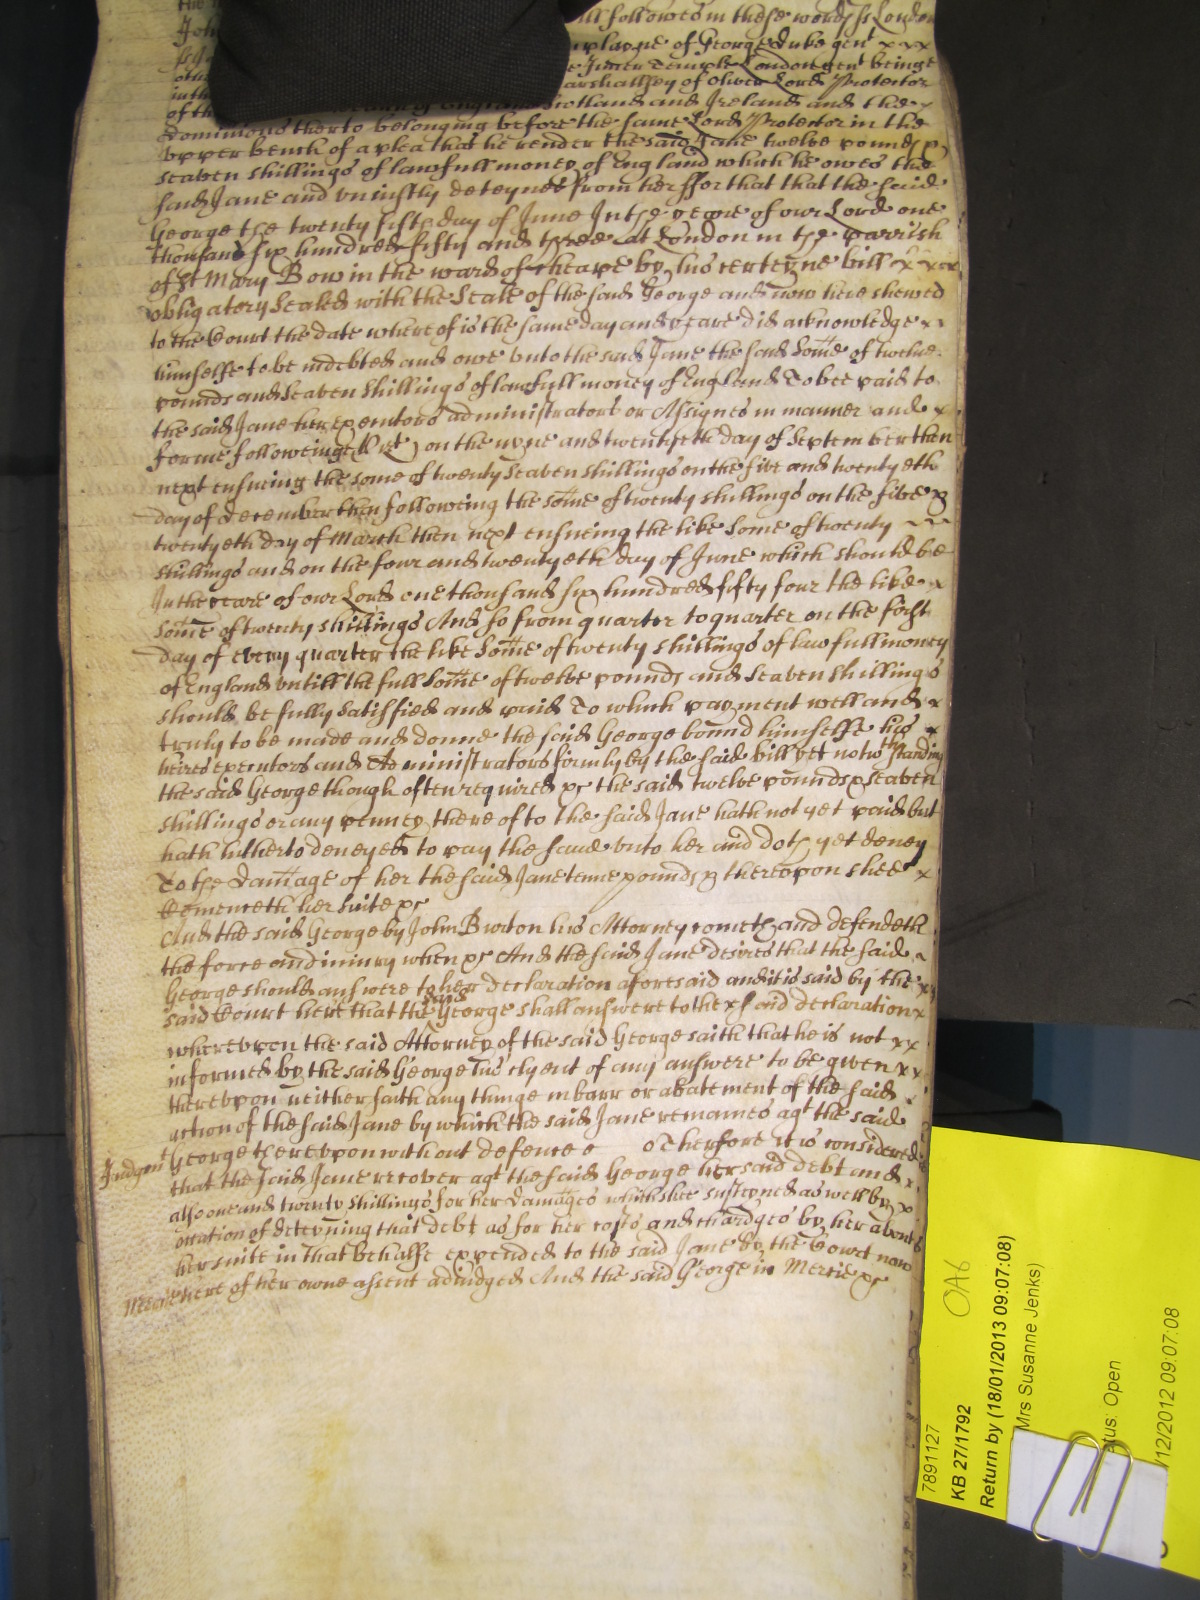 followes in these words ss London
playne of George Duke gent x x x
Inner Temple London gent beinge
arshallsey of Oliver Lord Protector
of the England Scotland and Ireland and the
Dominions therto belonging before the same Lord Protector in the
vpper bench of a plea that he render the said Jane twelve pounds
seaven shillings of lawfull money of England which he owes the
said Jane and vniustly deteynes from her ffor that that the said
George the twenty fifth day of June In the yeare of our Lord one
thousand six hundred fifty and three at London in the parrish
of St Mary Bow in the ward of Cheape by his certeyne bill x x x
obligatory Sealed with the Seale of the said George and now here shewed
to the Court the date whereof is the same day and yeare did acknowledge x x
himselfe to be indebted and owe vnto the said Jane the said Some of twelve
pounds and seaven shillings of lawfull money of England To bee paid to
the said Jane her executors administrators or Assignes in manner and x
forme followeinge on the nyne and twentyeth day of September then
next ensueing the some of twenty seaven shillings on the five and twentyeth
day of december then followeing the some of twenty shillings on the five &
twentyeth day of March then next ensueing the like Some of twenty
shillings and on the four and twentyeth day of June which should be
In the yeare of our Lord one thousand six hundred fifty four the like x
some of twenty shillings And so from quarter to quarter on the first
day of every quarter the like Some of twenty shillings of lawfull money
of England vntill the full Some of twelve pounds and seaven shillings
should be fully satisfied and paid To which payment well and x
truly to be made and donne the said George bound himselfe his x
heires executors and Administrators firmly by the said bill yet notwthstanding
the said George though often required &c the said twelve pounds & seaven
shillings or any penney thereof to the said Jane hath not yet paid but
hath hitherto deneyed to pay the same vnto her and doth yet deney
To the damage of her the said Jane tenne pounds & thereupon shee x
Comenceth her suite &c
And the said George by John Burton his Attorney cometh and defendeth
the force and iniury when &c And the said Jane desires that the said
George should answere to her declaration aforesaid and it is said by the x x
said Court here that the said George shall answere to the x said declaration x
whereupon the said Attorney of the said George saith that he is not x x
informed by the said George his clyent of any answere to be given x x
thereupon neither saith any thinge in barr or abatement of the said
action of the said Jane by which the said Jane remaines agt the said
Judgmt George thereupon without defence Therfore it is considered
that the said Jane recover agt the said George her said debt and x
also one and twenty shillings for her damages which shee susteyned as well by
occation of deteyning that debt as for her costs and chardges by her about
her suite in that behalfe expended to the said Jane by the Court now
Mercie here of her owne assent adiudged And the said George in Mercie &c
7891127
KB 27/1792
OA6
Return by (18/01/2013 09:07:08)
Mrs Susanne Jenks)
tus: Open
/12/2012 09:07:08